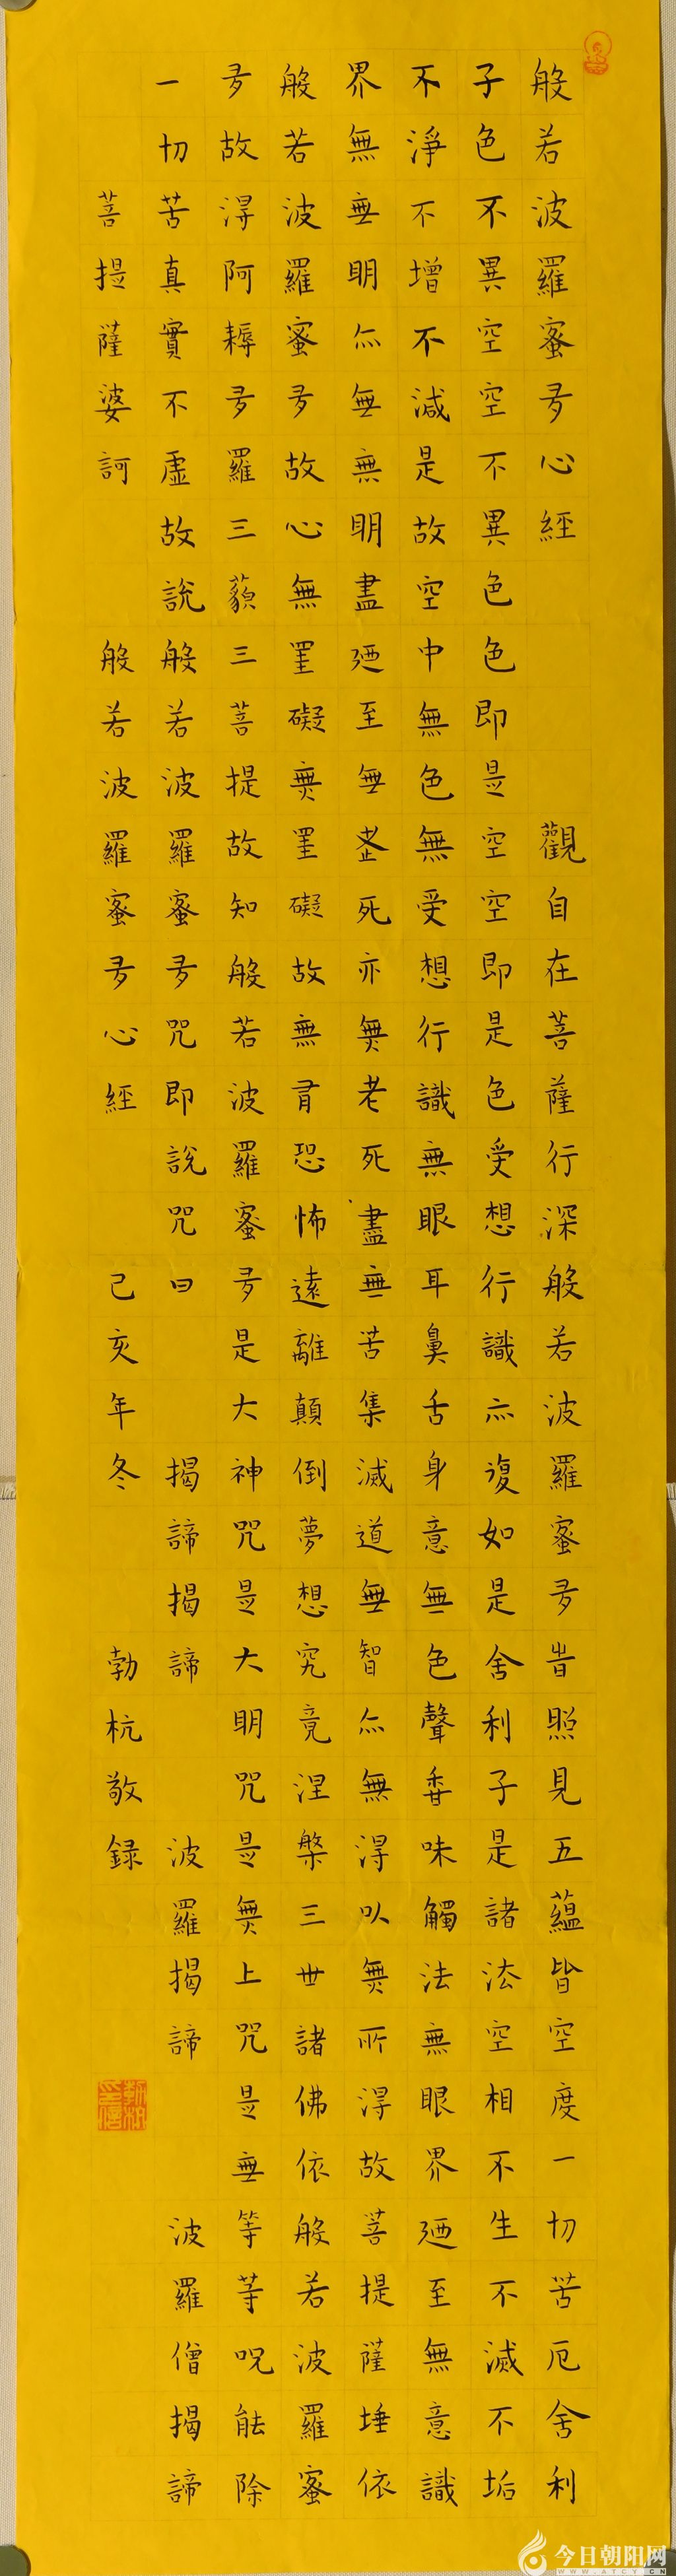 般若波羅蜜多心經 觀自在菩薩行深般若波羅蜜多旹照見五蘊皆空度一切苦厄舍利
子色不異空空不異色色即是空空即是色受想行識亦復如是舍利子是諸法空相不生不滅不垢
不淨不增不減是故空中無色無受想行識無眼耳鼻舌身意無色聲香味觸法無眼界廼至無意識
界無無明亦無無明盡廼至無老死亦無老死盡無苦集滅道無智亦無得以無所得故菩提薩埵依
般若波羅蜜多故心無罣礙無罣礙故無有恐怖遠離顛倒夢想究竟涅槃三世諸佛依般若波羅蜜
多故得阿耨多羅三藐三菩提故知般若波羅蜜多是大神咒是大明咒是無上咒是無等等呪能除
一切苦真實不虛故說般若波羅蜜多咒即說咒曰 揭諦揭諦 波羅揭諦 波羅僧揭諦
菩提薩婆訶 般若波羅蜜多心經 己亥年冬 勃杭敬録
今日朝阳网
WWW.ATCY.CN